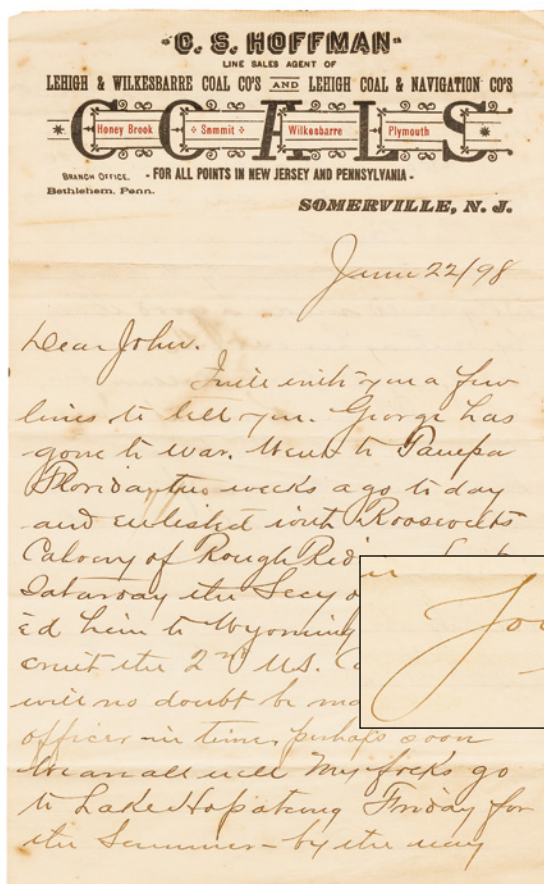 C. S. HOFFMAN
LINE SALES AGENT OF
LEHIGH & WILKESBARRE COAL CO'S AND LEHIGH COAL & NAVIGATION CO'S
COALS
Honey Brook Summit Wilkesbarre Plymouth
BRANCH OFFICE. - FOR ALL POINTS IN NEW JERSEY AND PENNSYLVANIA -
Bethlehem, Penn.
SOMERVILLE, N. J.
June 22/98
Dear John.
I will write you a few
lines to tell you. George has
gone to war. Went to Tampa
Florida two weeks ago to day
and enlisted with Roosevelts
Calvery of Rough
Saturday the Secy
ed him to Wyoming
cruit the 2nd U.S.
will no doubt be
officer in time, perhaps soon
We are all well My folks go
to Lake Hopatcong Friday for
the Summer - by the way